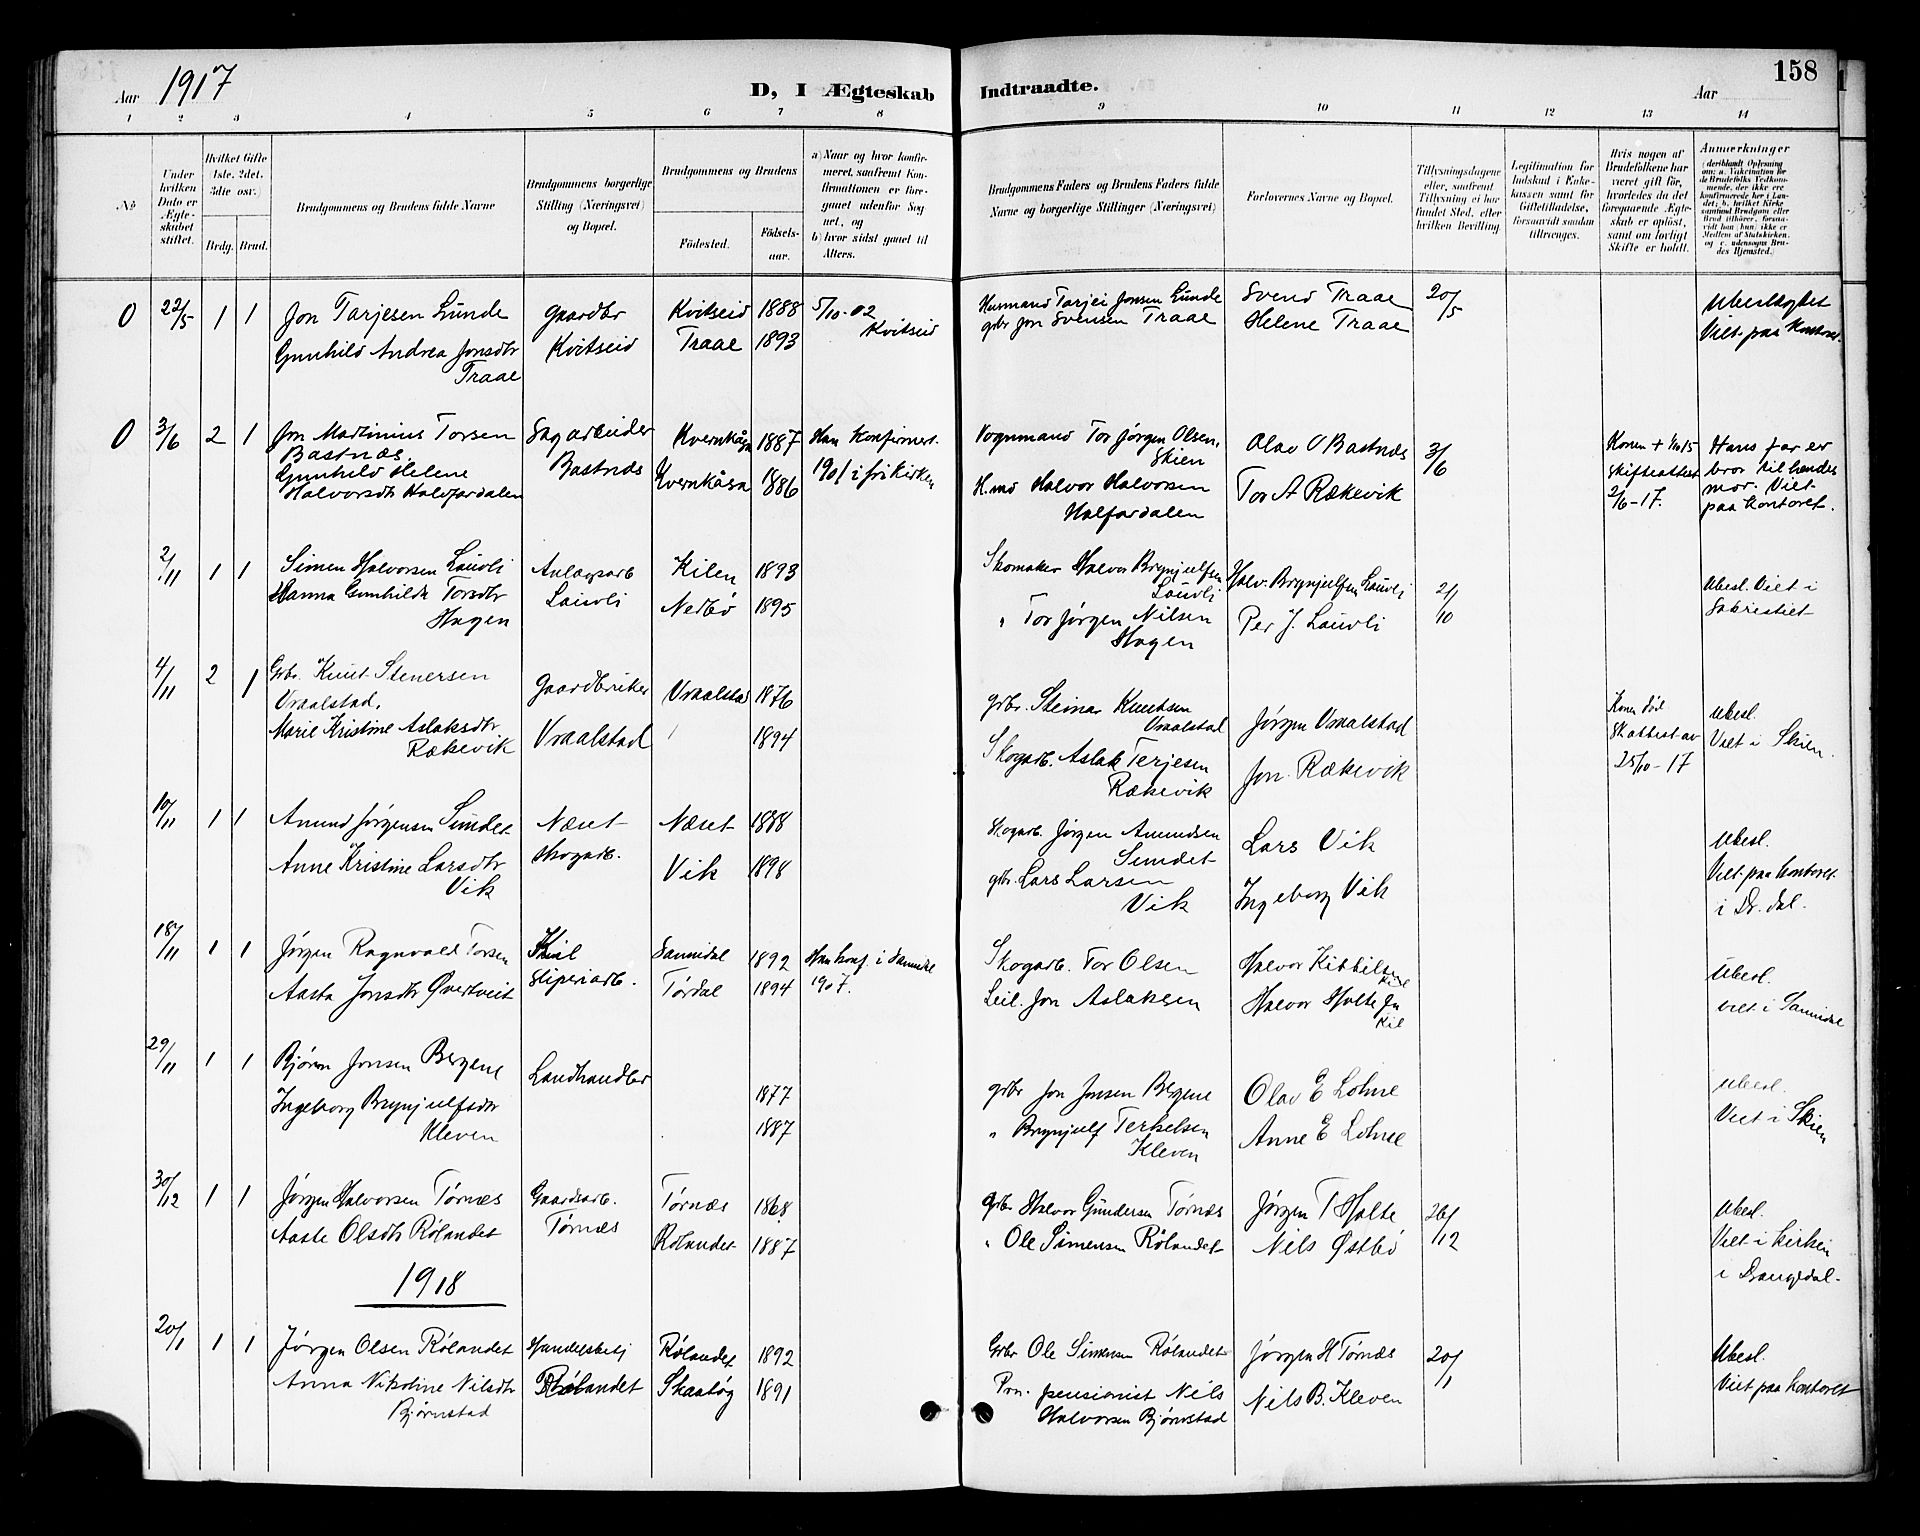 Aar 1917
D, I Ægteskab Indtraadte.
158
Aar
1 2 3 4 5 6 7 8 9 10 11 12 13 14
No
Under hvilken Dato er Ægteskabet stiftet.
Hvilket Gifte (1ste, 2det, 3die osv.)
Brdg. Brud.
Brudgommens og Brudens fulde Navne
Brudgommens borgerlige Stilling (Næringsvei) og Bopæl.
Brudgommens og Brudens
Födested.
Födselsaar.
a) Naar og hvor konfirmeret, saafremt Konfirmationen er foregaaet udenfor Sognet, og
b) hvor sidst gaaet til Alters.
Brudgommens Faders og Brudens Faders fulde Navne og borgerlige Stillinger (Næringsvei)
Forlovernes Navne og Bopæl.
Tillysningsdagene eller, saafremt Tillysning ei har fundet Sted, efter hvilken Bevilling
Legitimation for Indskud i Enkekassen samt for Giftetilladelse, forsaavidt saadan tiltrænges.
Hvis nogen af Brudefolkene har været gift för, hvorledes da det foregaaende Ægteskab er oplöst, samt om lovligt Skifte er holdt.
Anmærkninger
(deriblandt Oplysning om: a. Vaccination for de Brudefolks Vedkommende, der ikke ere konfirmerede her i Landet; b. hvilket Kirkesamfund Brudgom eller Brud tilhörer, forsaavidt han (hun) ikke er Medlem af Statskirken, og c. udensogns Brudes Hjemsted.)
0 22/5 1 1 Jon Tarjesen Lunde Gaardbr Kvitseid 1888 5/10-02 Husmand Tarjei Jonsen Lunde Svend Traae 20/5 Ubeslægtet
Gunhild Andrea Jonsdtr Kvitseid Traae 1893 Kvitseid gbr Jon Svensen Traae Helene Traae Viet paa kontoret.
Traae
0 3/6 2 1 Jon Martinius Torsen Sagarbeider Kvernkåsa 1887 Han konfirmert Vognmand Tor Jørgen Olsen, Olav O Bastnæs 3/6 Konen + 14/1 15 Hans far er
Bastnæs. Bastnæs 1901 i frikirken Skien skifteattest bror til hendes
Gunhild Helene Kvernkåsa 1886 H.md Halvor Halvorsen Tor A Rækevik 2/6-17. mor. Viet
Halvorsdtr Halfardalen Halfardalen paa kontoret.
2/11 1 1 Simen Halvorsen Lauvli Anlægsarb Kilen 1893 Skomaker Halvor Brynjulfsen Halv. Brynjulfsen Lauvli 21/10 Ubesl. Viet i
Hanna Gunhilda Torsdtr Lauvli Nedbø 1895 Lauvli Per J. Lauvli Sakristiet
Hagen " Tor Jørgen Nilsen
Hagen
4/11 2 1 Gbr. Knut Stenersen Gaardbruker Vraalstad 1876 gbr. Steinar Knutsen Jørgen Vraalstad Konen død Ubesl.
Vraalstad, Vraalstad Vraalstad Sk.attest av Viet i Skien.
Marie Kristine Aslaksdtr. 1894 Skogarb. Aslak Terjesen Jon. Rækevik 25/10-17
Rækevik Rækevik
10/11 1 1 Anund Jørgensen Sundet Næset Næset 1888 Skogarb. Jørgen Anundsen Lars Vik Ubesl.
Anne Kristine Larsdtr skogarb. Vik 1898 Sundet Viet paa kontoret
Vik gbr. Lars Larsen Ingeborg Vik i Dr.dal.
Vik
18/11 1 1 Jørgen Ragnvald Torsen Kil Sannidal 1892 Han konf. i Sannidal Skogarb. Tor Olsen Halvor Kittilsen Ubesl.
Aasta Jonsdtr Øvertveit Sliperiarb. Tørdal 1894 1907. Leil. Jon Aslaksen Kil viet i Sannidal
Halvor Holte jn
Kil
29/11 1 1 Bjørn Jonsen Bergene Landhandler 1877 gbr Jon Jonsen Bergene Olav E Lohne Ubesl.
Ingeborg Brynjulfsdtr 1887 " Brynjulf Terkelsen Anne E Lohne Viet i Skien
Kleven Kleven
30/12 1 1 Jørgen Halvorsen Tørnæs Gaardsarb. Tørnæs 1868 Gbr Halvor Gundersen Tørnæs Jørgen T Holte 26/12 Ubesl.
Aaste Olsdtr Rølandet Tørnæs Rølandet 1887 " Ole Simensen Rølandet Nils Østbø Viet i kirken
i Drangedal.
1918
20/1 1 1 Jørgen Olsen Rølandet Handelsbetj Rølandet 1892 Gbr Ole Simensen Rølandet Jørgen H Tørnæs 20/1 Ubesl.
Anna Nikoline Nilsdtr Rølandet Skaatøy 1891 Prn. pensionist Nils Nils B. Kleven Viet paa kontoret
Bjørnstad Halvorsen Bjørnstad